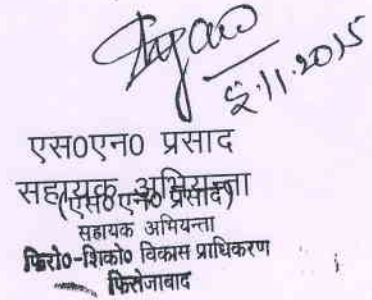 5.11.2015
एस0एन0 प्रसाद
सहायक अभियन्ता
(एस0एन0 प्रसाद)
सहायक अभियन्ता
फिरो0-शिको0 विकास प्राधिकरण
फिरोजाबाद